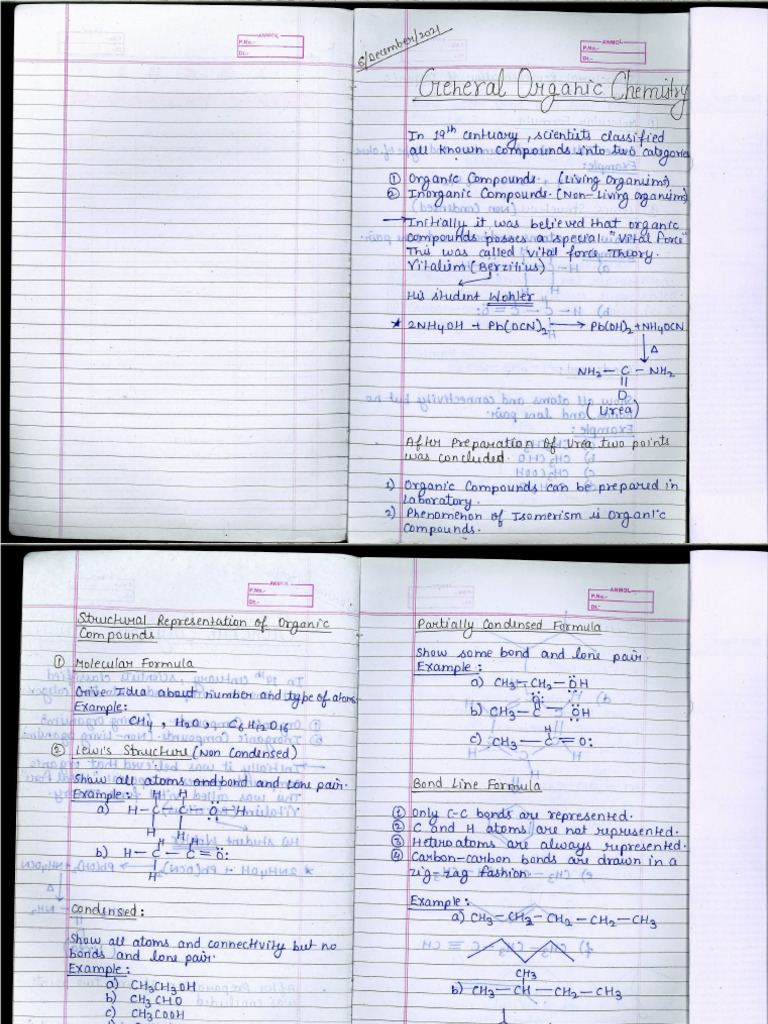 ANMOL
P.No.-
Dt.-
6/December/2021
ANMOL
P.No.-
Dt.-
General Organic Chemistry
In 19th centuary, scientists classified
all known compounds into two categories
① Organic Compounds. (Living Organisms)
② Inorganic Compounds. (Non-Living organisms)
→ Initially it was believed that organic
compounds posses a special "Vital Force"
This was called Vital force Theory.
Vitalism (Berzilius)
His student Wohler
* 2NH4OH + Pb(OCN)2 → Pb(OH)2 + NH4OCN
Δ
NH2 — C — NH2
||
O
(Urea)
After Preparation of Urea two points
was concluded.
1) Organic Compounds can be prepared in
laboratory.
2) Phenomenon of Isomerism is Organic
Compounds.
ANMOL
P.No.-
Dt.-
Structural Representation of Organic
Compounds
① Molecular Formula
Give Idea about number and type of atom.
Example:
CH4, H2O, C6H12O16
② Lewi's Structure (Non Condensed)
Show all atoms and bond and lone pair.
Example:
H H
a) H — C — C — O — H
H H
H H
b) H — C — C = O:
H
Condensed:
Show all atoms and connectivity but no
bonds and lone pair.
Example:
a) CH3CH2OH
b) CH3CHO
c) CH3COOH
ANMOL
P.No.-
Dt.-
Partially Condensed Formula
Show some bond and lone pair.
Example:
a) CH3—CH2—OH
:O:
b) CH3—C—OH
H
c) CH3—C=O:
Bond Line Formula
① Only C-C bonds are represented.
② C and H atoms are not represented.
③ Hetroatoms are always represented.
④ Carbon-carbon bonds are drawn in a
zig-zag fashion
Example:
a) CH3—CH2—CH2—CH2—CH3
CH3
b) CH3—CH—CH2—CH3